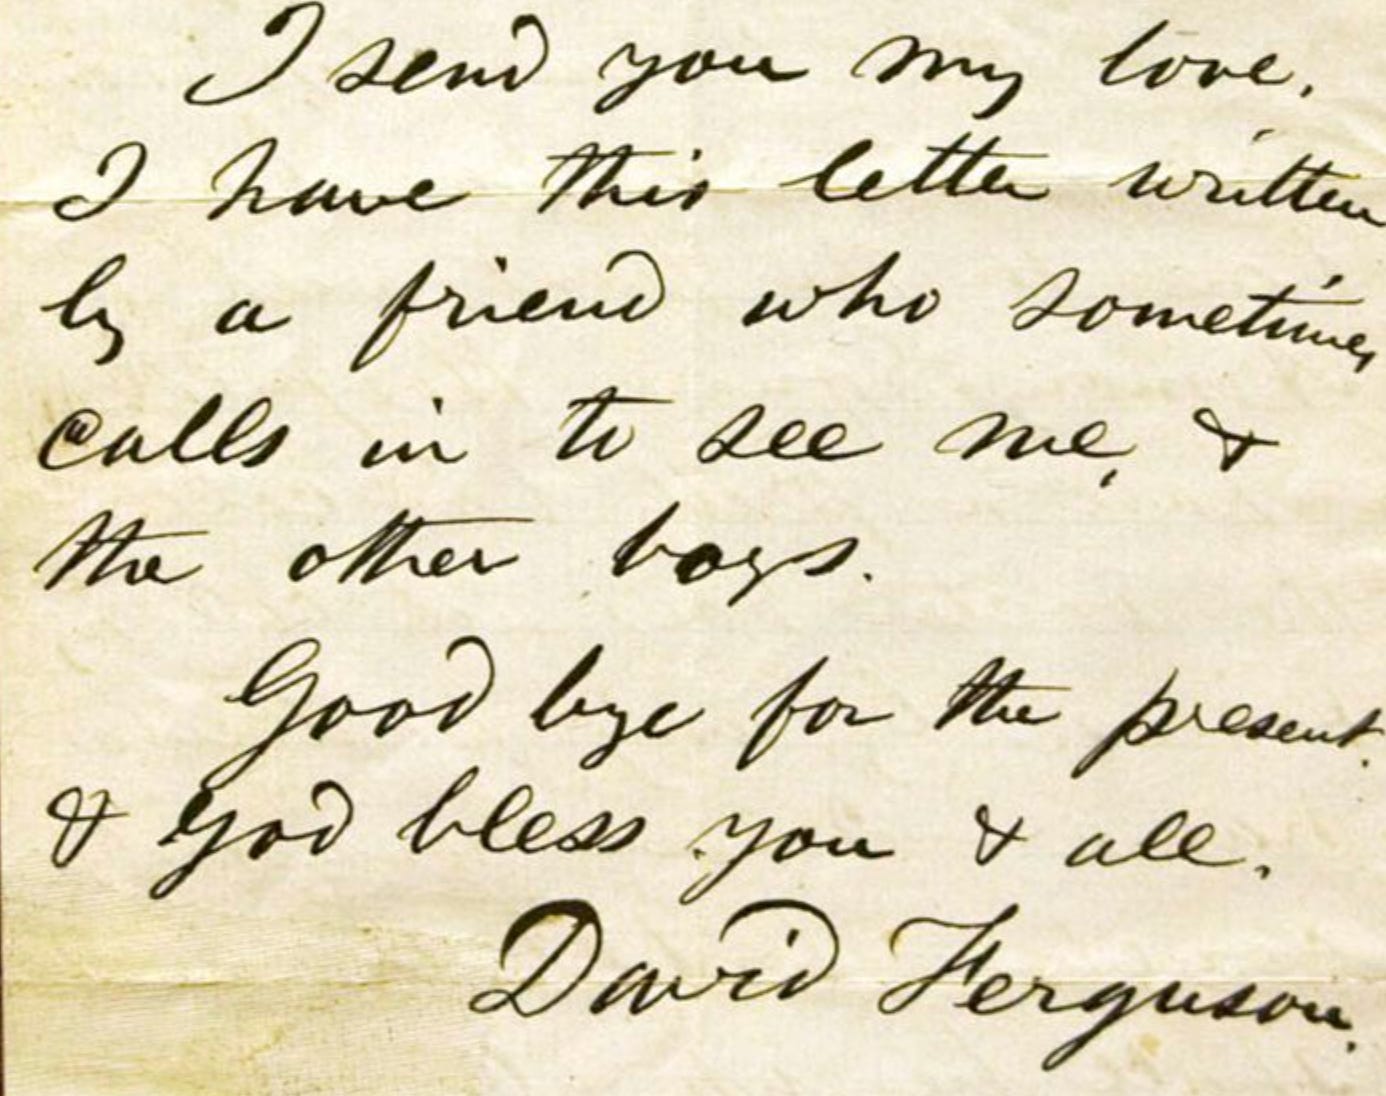 I send you my love.
I have this letter written
by a friend who sometimes
calls in to see me, &
the other boys.
Good bye for the present.
& God bless you & all.
David Ferguson.